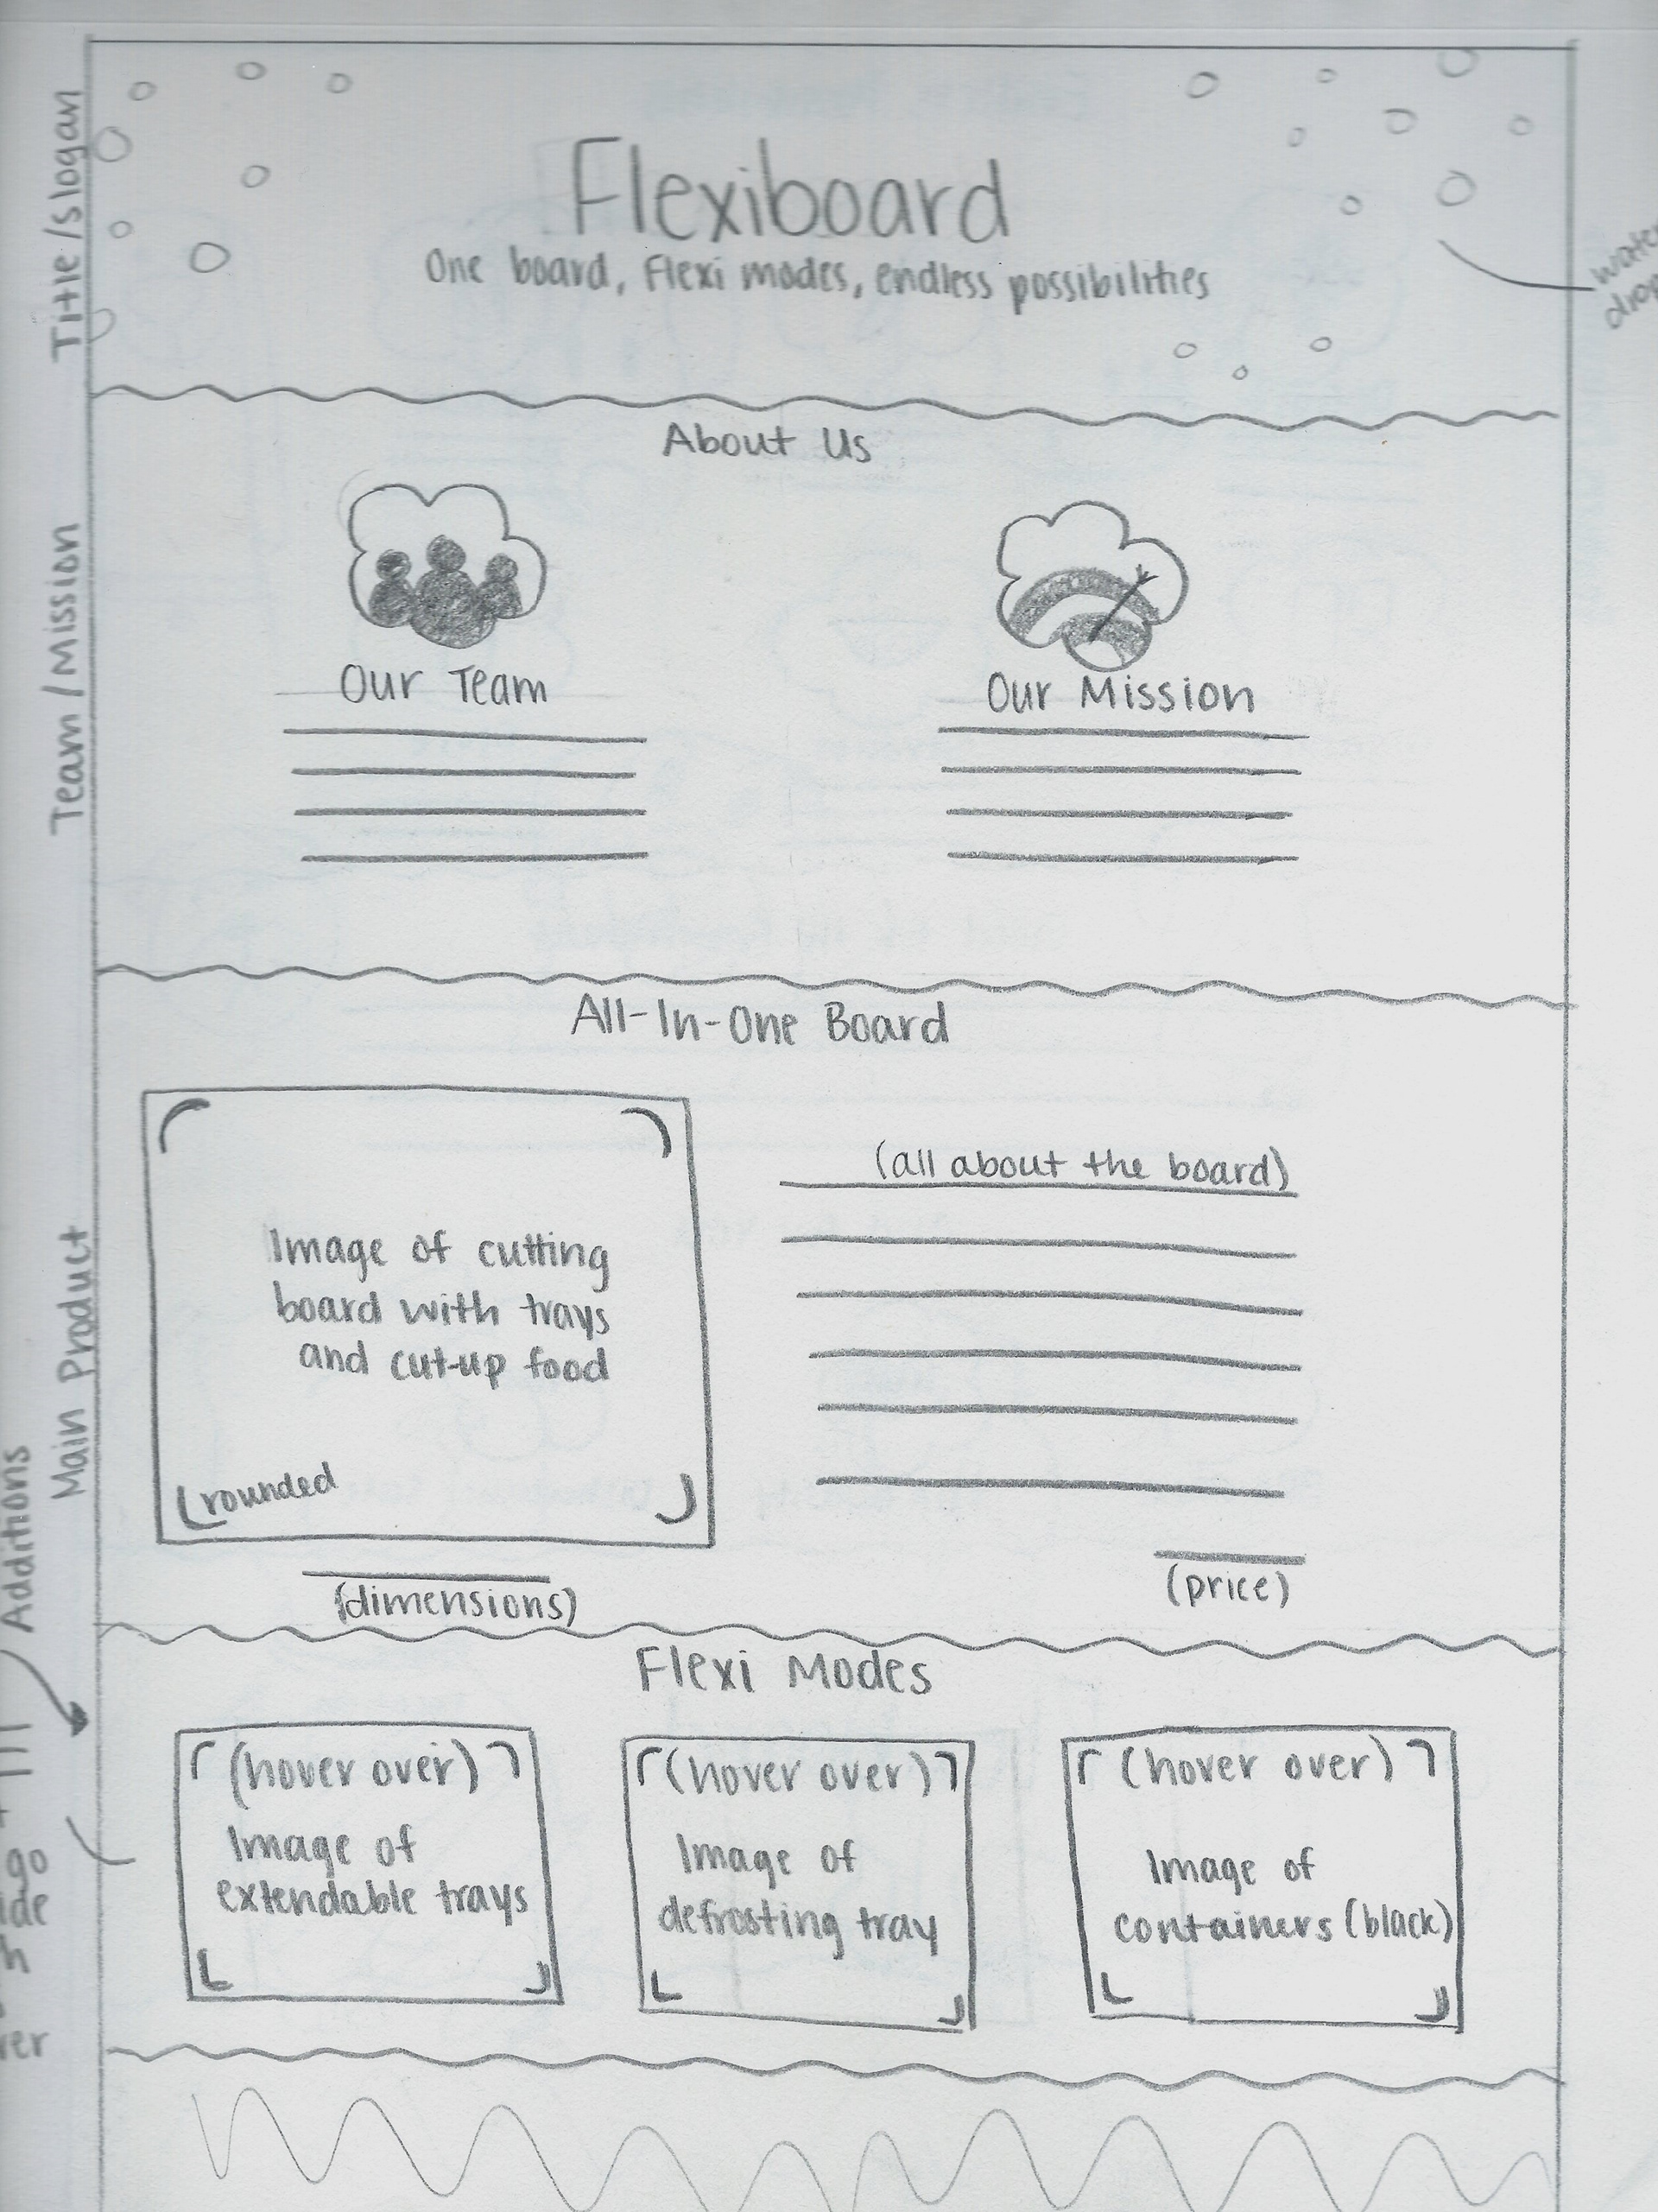 Title/slogan
Flexiboard
One board, Flexi modes, endless possibilities
About Us
Team/Mission
Our Team
Our Mission
All-In-One Board
Main Product
Image of cutting
board with trays
and cut-up food
rounded
(dimensions)
(all about the board)
(price)
Additions
Flexi Modes
(hover over)
Image of
extendable trays
(hover over)
Image of
defrosting tray
(hover over)
Image of
containers (black)
go